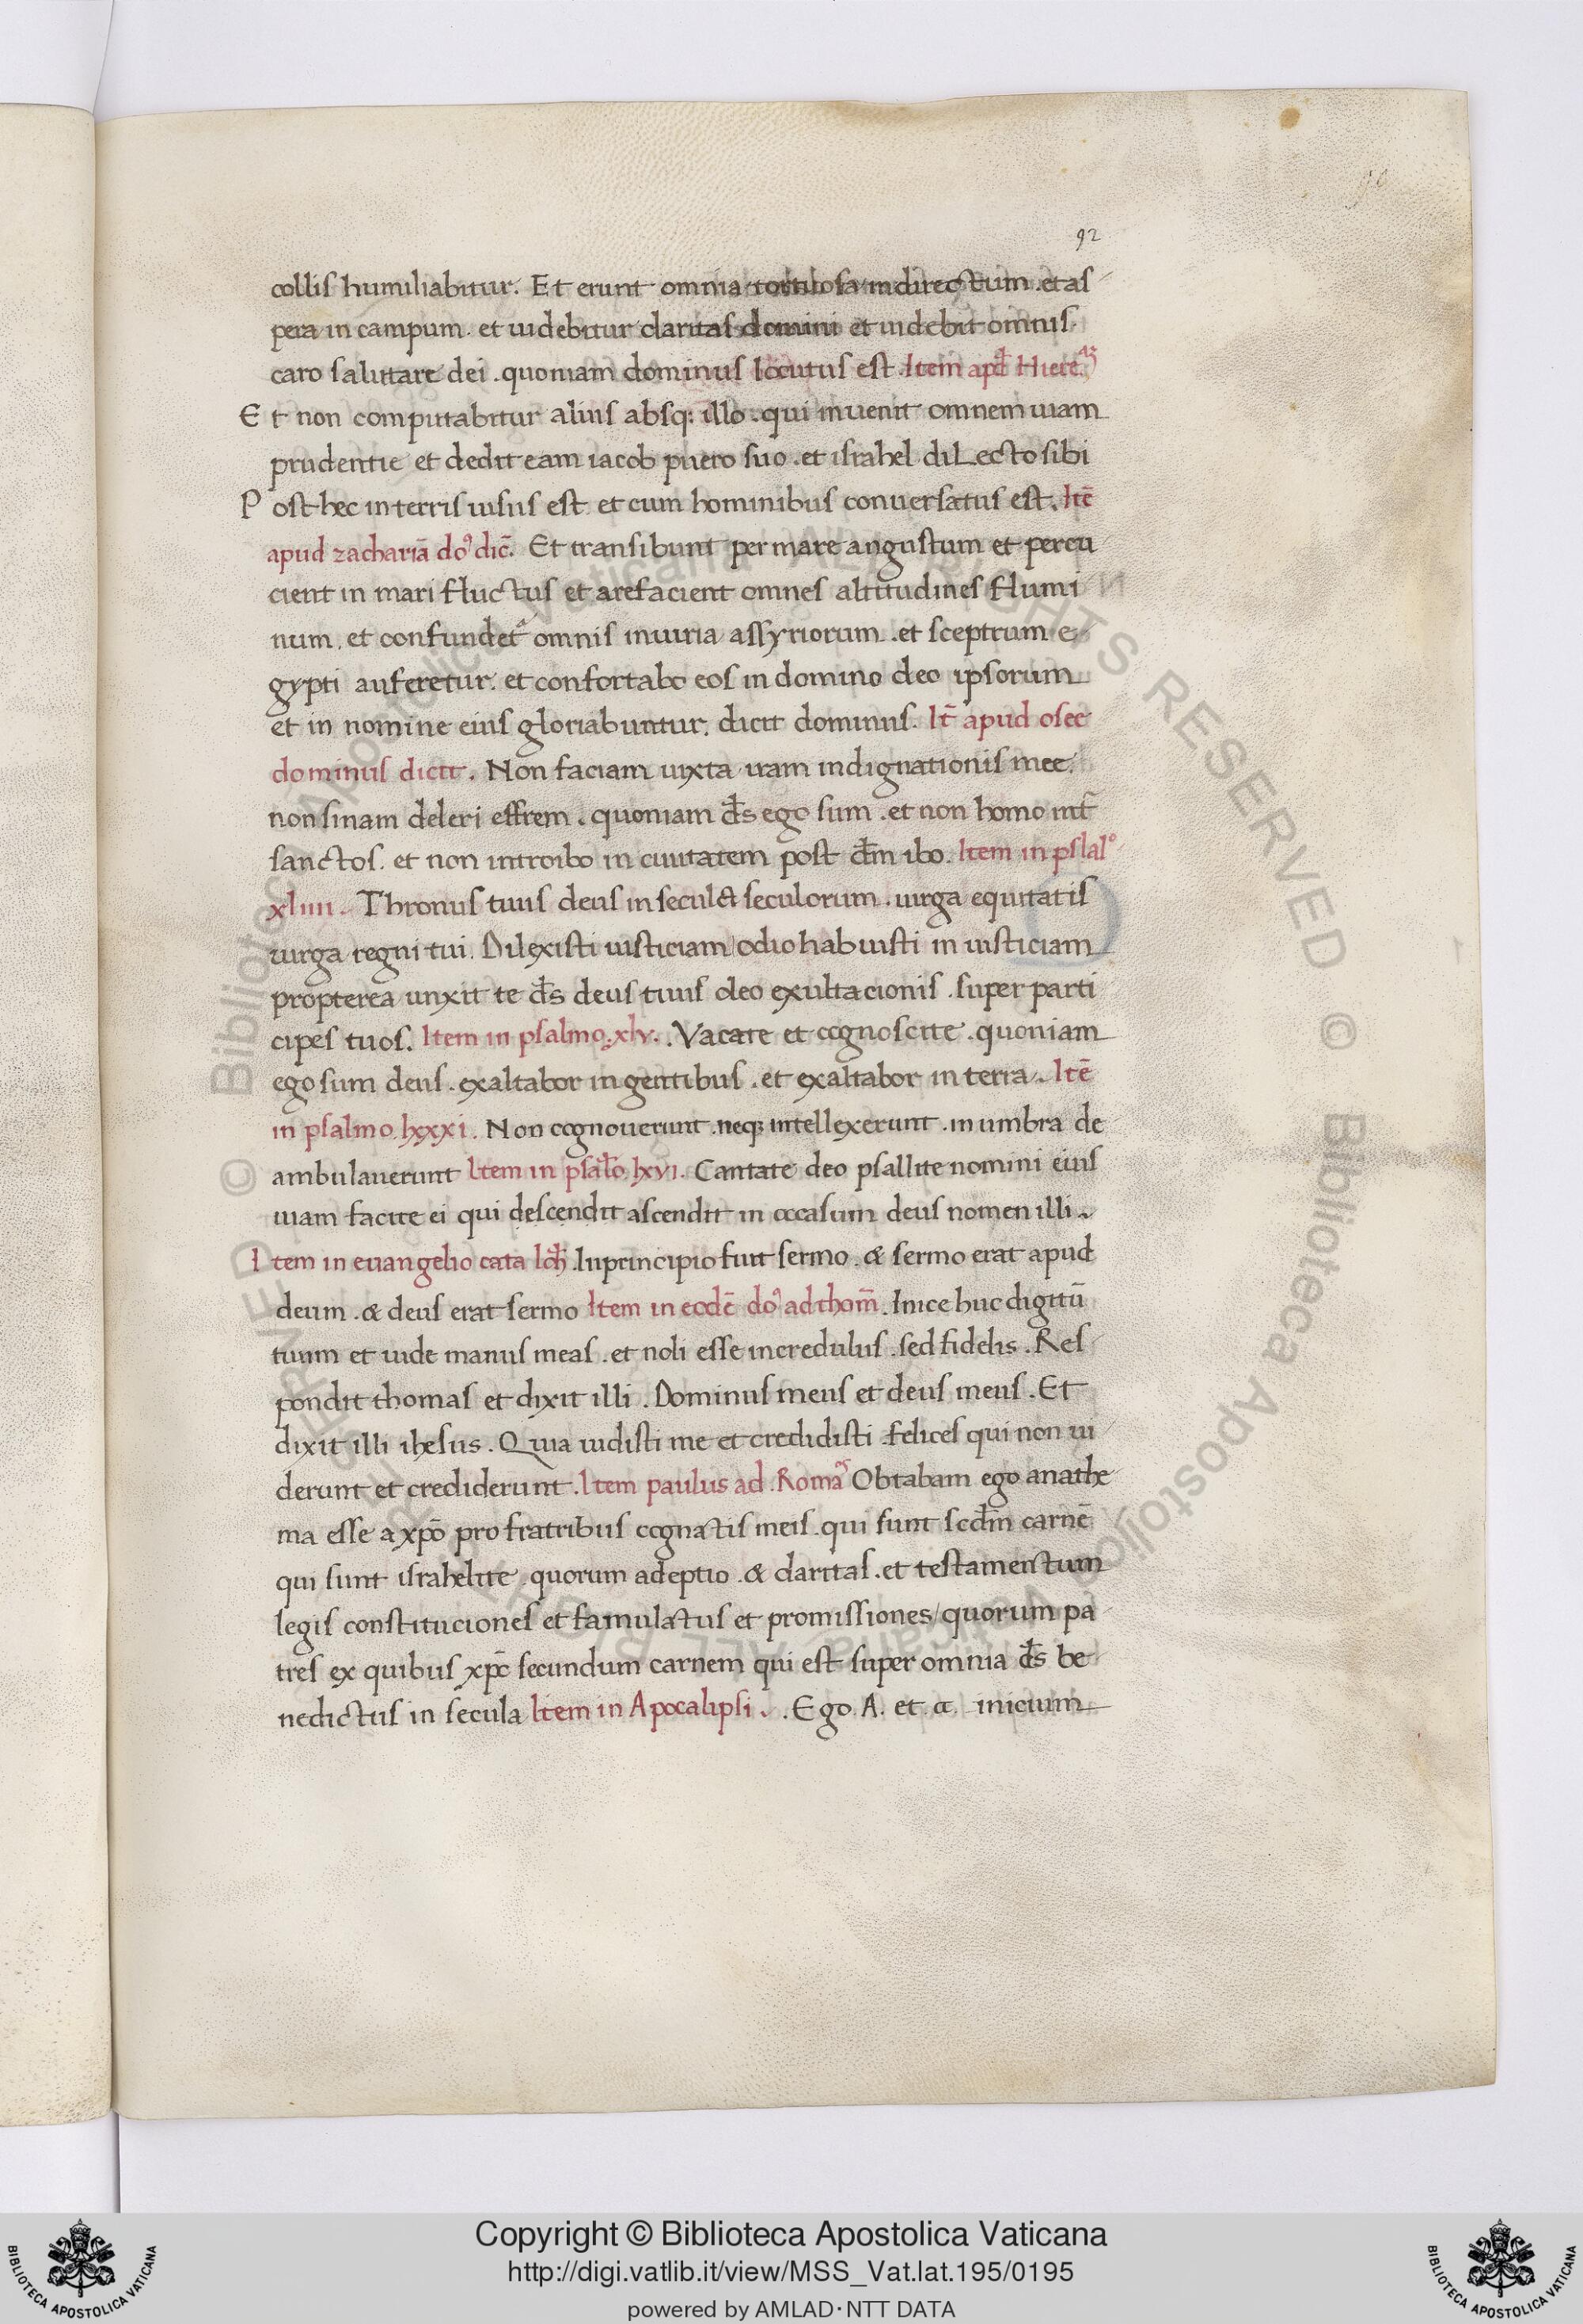 92
collis humiliabitur. Et erunt omnia tortuosa indirectum .et as
pera in campum. et uidebitur claritas domini et uidebit omnis
caro salutare dei .quoniam dominus locutus est .Item apd̄ Hiere
Et non computabitur alius absq; illo .qui inuenit omnem uiam
prudentie et dedit eam iacob puero suo .et israhel diLecto sibi
Post hec in terris uisus est. et cum hominibus conuersatus est. Itē
apud zachariā do' dic̄. Et transibunt per mare angustum et percu
cient in mari fluctus et arefacient omnes altitudines flumi
num. et confundet᷑ omnis iniuria assyriorum .et sceptrum e
gypti auferetur. et confortabo eos in domino deo ipsorum
et in nomine eius gloriabuntur. dicit dominus. It̄ apud osee
dominus dicit. Non faciam iuxta iram indignationis mee.
non sinam deleri effrem .quoniam d̄s ego sum .et non homo int̄
sanctos. et non introibo in ciuitatem post d̄m ibo. Item in pslal°
xliiii. Thronus tuus deus in secula seculorum .uirga equitatis
uirga regni tui. Dilexisti iusticiam/odio habuisti in iusticiam
propterea unxit te d̄s deus tuus oleo exultacionis .super parti
cipes tuos. Item in psalmo .xlv. .Vacate et cognoscite .quoniam
ego sum deus .exaltabor in gentibus .et exaltabor in terra. Itē
in psalmo lxxxi. Non cognouerunt .neq; intellexerunt .in umbra de
ambulauerunt Item in psal̄o lxvi. Cantate deo psallite nomini eius
uiam facite ei qui descendit ascendit in occasum deus nomen illi.
Item in euangelio cata Ioh̄ .Inprincipio fuit sermo .& sermo erat apud
deum .& deus erat sermo Item in eodē do' ad thom̄ .Inice huc digitū
tuum et uide manus meas .et noli esse incredulus .sed fidelis .Res
pondit thomas et dixit illi .Dominus meus et deus meus .Et
dixit illi ihesus .Quia uidisti me et credidisti .felices qui non ui
derunt et crediderunt .Item paulus ad .Roma Obtabam ego anathe
ma esse a xp̄o pro fratribus cognatis meis .qui sunt scd̄m carnē
qui sunt israhelite .quorum adeptio .& claritas .et testamentum
legis constituciones et famulatus et promissiones/quorum pa
tres ex quibus xp̄c secundum carnem qui est super omnia d̄s be
nedictus in secula Item in Apocalipsi. .Ego .A. et .ω. inicium
Copyright © Biblioteca Apostolica Vaticana
http://digi.vatlib.it/view/MSS_Vat.lat.195/0195
powered by AMLAD·NTT DATA
BIBLIOTECA APOSTOLICA VATICANA
BIBLIOTECA APOSTOLICA VATICANA
© Biblioteca Apostolica Vaticana ALL RIGHTS RESERVED © Biblioteca Apostolica Vaticana ALL RIGHTS RESERVED